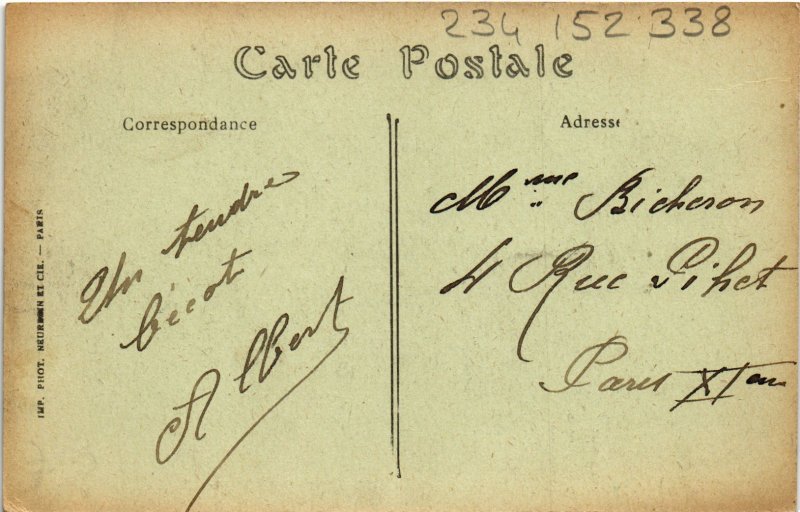 234 152 338
Carte Postale
Correspondance
Adresse
Un tendre
bécot
Albert
Mme Bicheron
4 Rue Pihet
Paris XIem
IMP. PHOT. NEURDEIN ET CIE. — PARIS